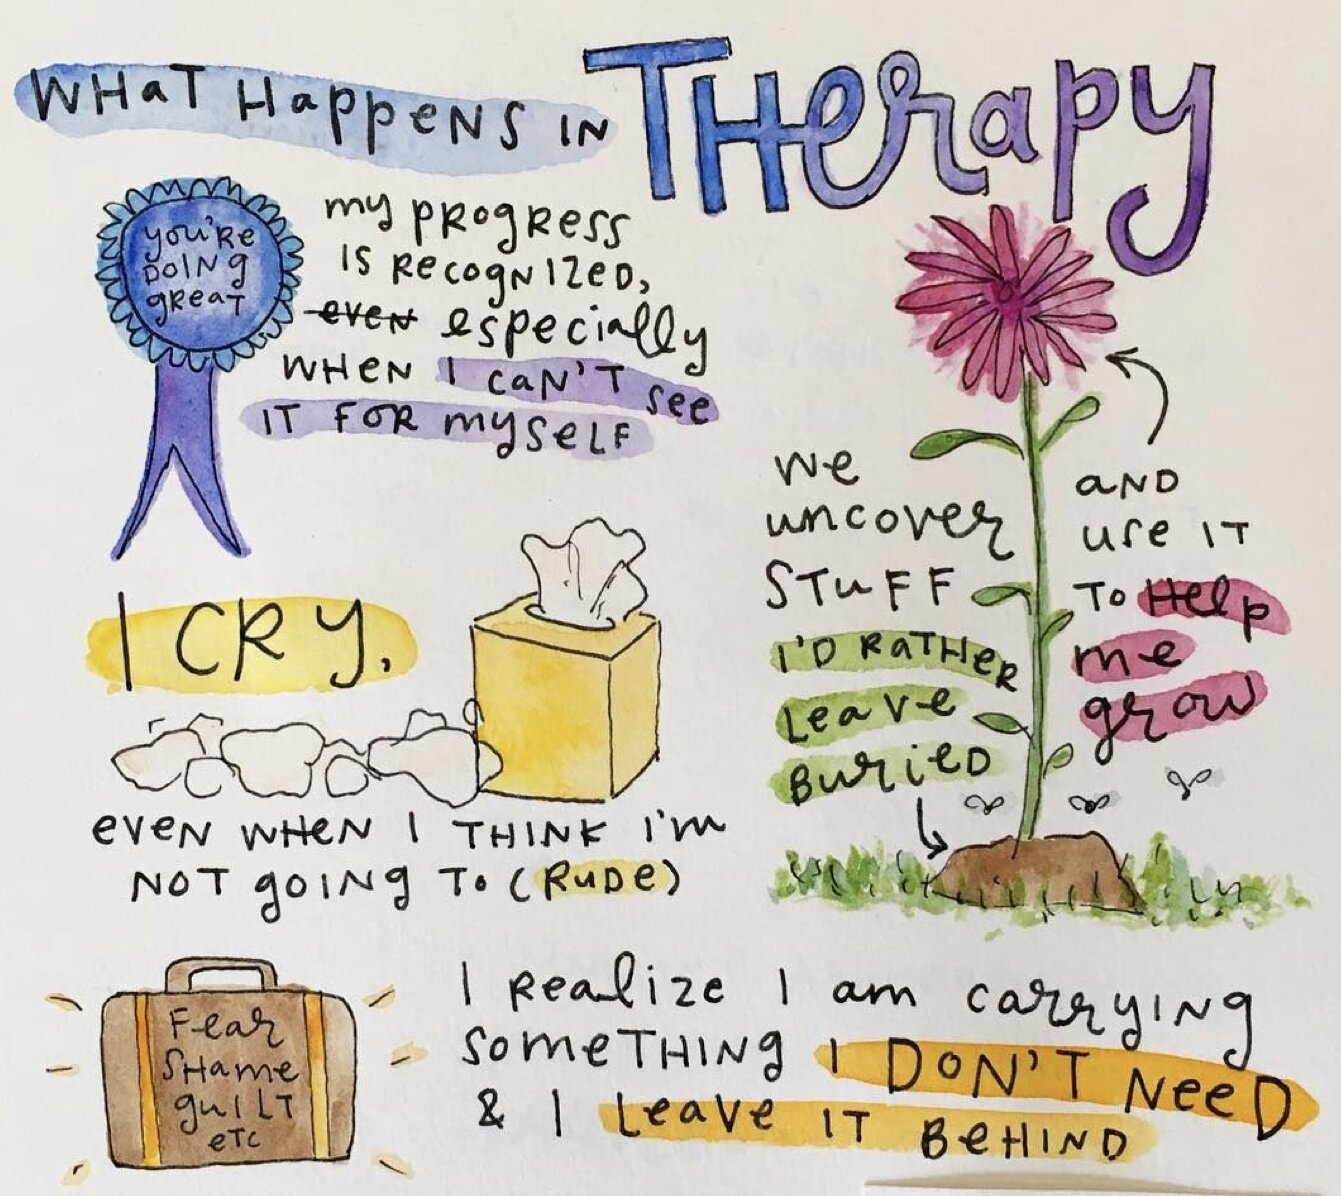 WHaT HappeNS IN THerapy
you're
DOING
great
my PROgRess
IS RecogNIZeD,
even especially
WHEN I caN'T see
IT FOR myself
I CRY.
even WHEN I THINK I'm
NOT goING To (RuDe)
we
uncover
STuFF
I'D RATHeR
Leave
BurieD
aND
use IT
To Help
me
grow
Fear
SHame
guILT
eTC
I Realize I am carryINg
someTHINg I DON'T NeeD
& I Leave IT BeHIND